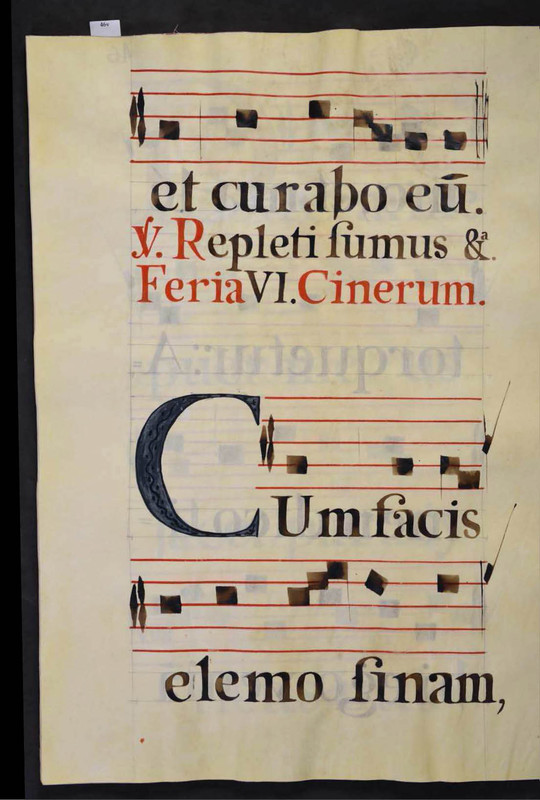 et curabo eū.
℣. Repleti ſumus &ª.
Feria VI. Cinerum.
CUm facis
elemo ſinam,